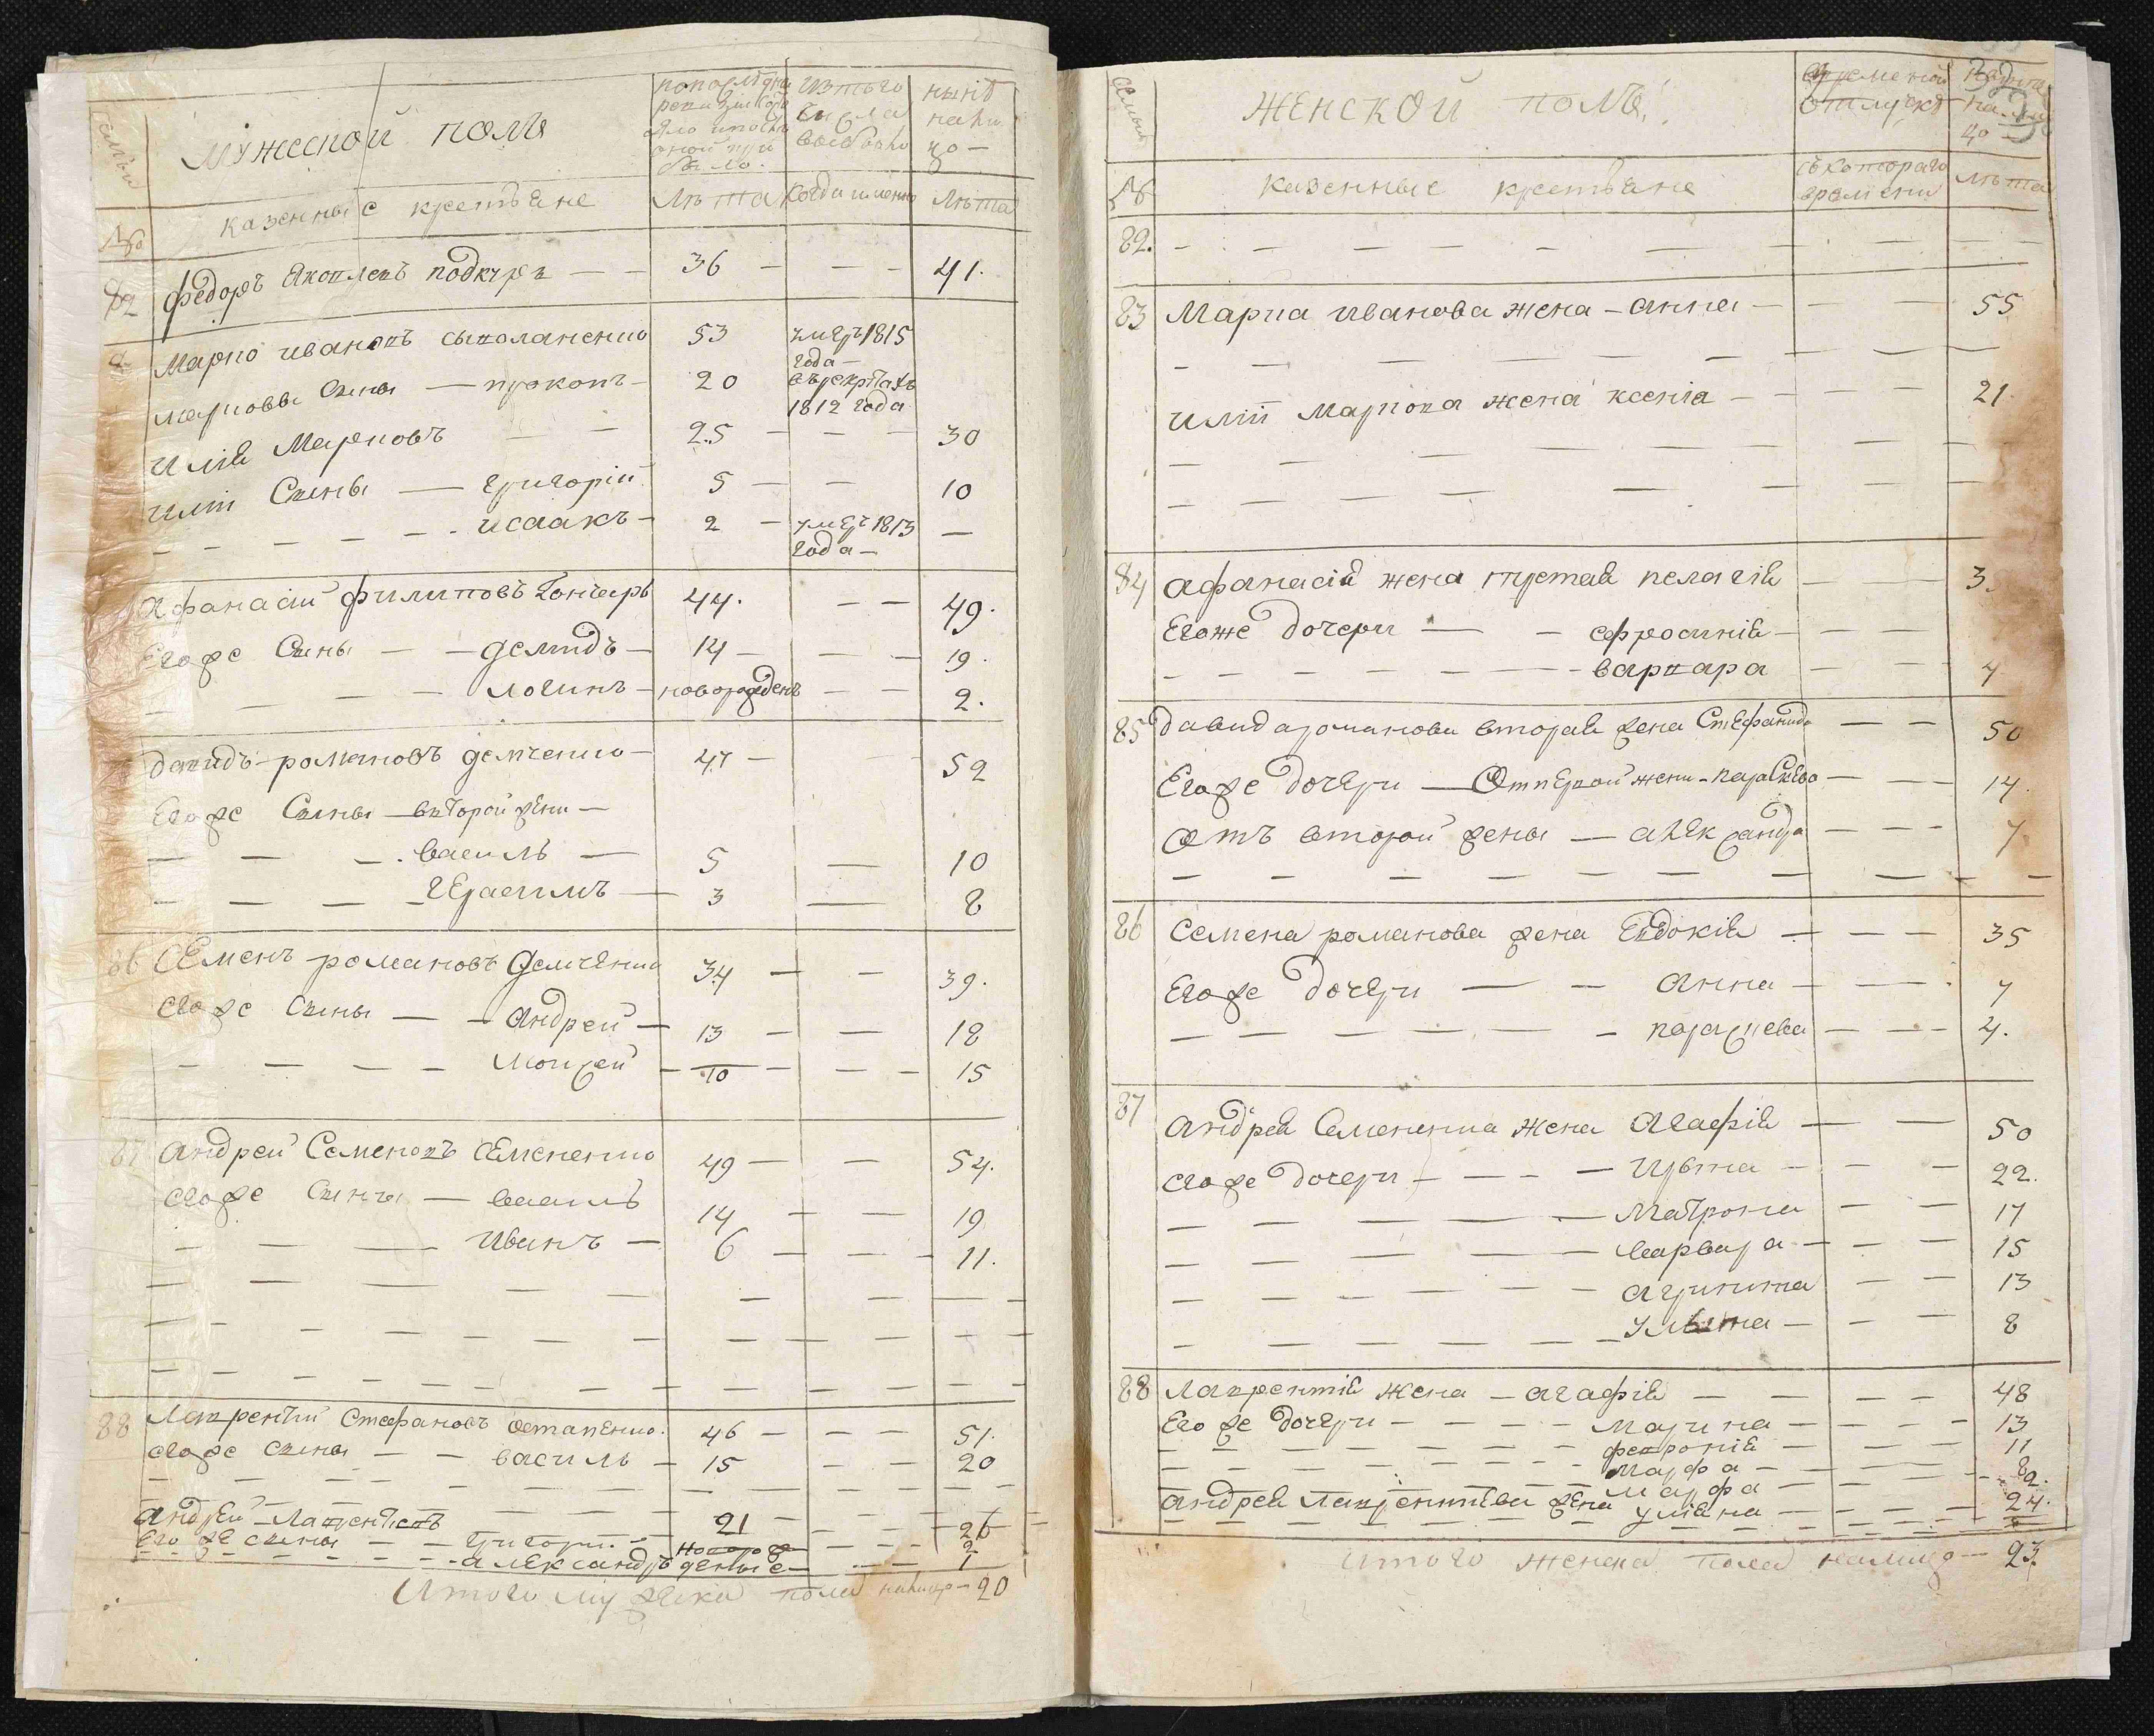 семьи
мужеской полъ
по последней ревизии состояло и после оной прибыло.
изъ того числа выбыло
ныне налицо —
№
казенные крестьяне
лета
когда именно
лета
82 федоръ Яковлевъ подкуръ — — 36 — — — 41.
Марко ивановъ 53 умеръ 1815 года —
марковы сыны — прокопъ — 20 въ рекрутахъ 1812 года
илія Марковъ — — 25 — — — 30
иліи Сыны — григорій 5 — — 10
— — — — — исаакъ — 2 — умеръ 1813 года — —
Афанасій филиповъ Гончаръ 44. — — 49.
Егоже Сыны — — демидъ — 14 — — — 19.
— — — — логинъ — новорожденъ — — 2.
давидъ романовъ демченко — 47 — — 52
Егоже Сыны — второй жени —
— — — василь — 5 — 10
— — — — Герасимъ — 3 — 8
86 Семенъ романовъ Демченко 34 — — 39.
Егоже Сыны — — Андрей — 13 — — 18
— — — — Моисей — 10 — — — 15
87 Андрей Семеновъ Семененко 49 — — 54.
Егоже Сыны — василь 14 — — 19
— — — Иванъ — 6 — — — 11.
88 Лаврентій Стефановъ Остапенко. 46 — — — 51.
Егоже сыны — — василь — 15 — — 20
Андрей Лаврентіевъ — — — 21 — — — 26
Его же сыны — — Григорій — новорож — — — 2
— — — — — — Александръ денные — — — 1
Итого мужска пола налицо — 20
семьи
женской полъ
временной отлучке
налицо
№
казенные крестьяне
съ котораго времени
лета
82. — — — — — — — — —
83 Марка иванова жена — анна — — — 55
иліи Маркова жена ксенія — — — 21.
84 афанасія жена третая пелагія — — 3
Егоже дочери — — ефросинія — — —
— — — — — — — варвара — — 4
85 давида романова вторая жена Стефанида — — 50
Егоже дочери — Отпервой жени — параскева — — 14.
Отъ второй жены — александра — — — 7
86 Семена романова жена Евдокія — — — 35
Егоже дочери — — Анна — — — 7
— — — — — — — параскева — — — 4.
87 Андрея Семененка жена Агафія — — 50
Егоже дочери — — — — — — 22.
— — — — — Матрона — — 17
— — — — — варвара — — — 15
— — — — — — — — 13
— — — — — — Ульяна — — — 8
88 Лаврентія жена — агафія — — — — 48
Его же дочери — — — — Марина — — — — 13
— — — — — — — феврония — — — — 11
— — — — — — — Марфа — — — — 8
— — — — — — — Марфа — — — — 2.
Андрея Лаврентіева жена уліяна — — — — 24.
Итого женска пола налицо — 23.